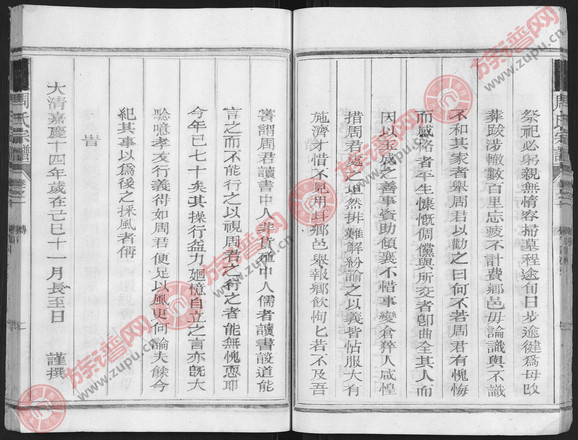 祭祀必躬親無惰容掃墓程途旬日步達健爲毋改
葬跋涉轍數百里忘疲不計費鄉邑毋論識與不識
不和其家者舉周君以勸之曰何不若周君有愧悔
而感格者平生慷慨倜儻與所交者卽曲全其人而
因以玉成之善事資助傾囊不惜事變倉猝人咸惶
措周君處之坦然排難解紛論之以義皆帖服大有
施濟才惜不見用
鄉邑舉報鄉飲恂匕若不及吾
嘗謂周君讀書中人非貨殖中人儒者讀書談道能
言之而不能行之以視周君之行之者能無愧恧耶
今年已七十矣其操行益力廻憶自立之言亦旣大
驗噫孝友行義得如周君使足以風更何論夫餘今
紀其事以爲後之採風者傳
旹
大清嘉慶十四年歲在己巳十一月長至日
謹撰
周氏宗譜
周氏宗譜
族谱网
www.zupu.cn
族谱网
www.zupu.cn
族谱网
www.zupu.cn
族谱网
www.zupu.cn